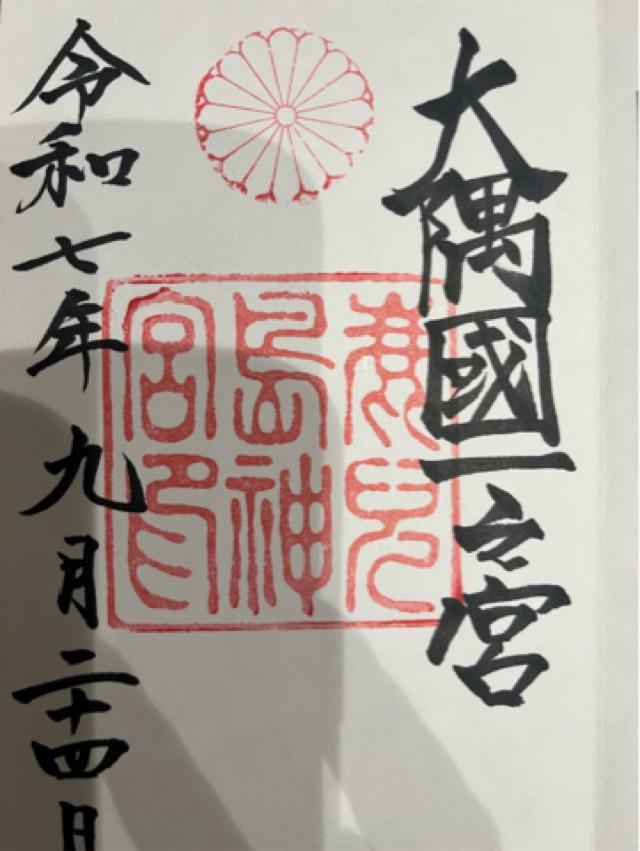 大隅國一之宮
鹿兒
島神
宮印
令和七年九月二十四日